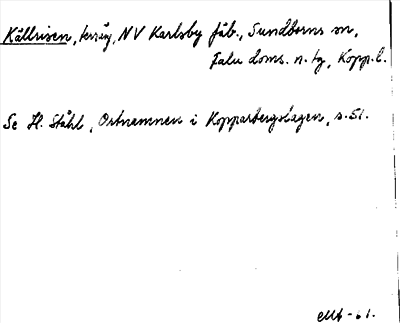 Källrisen, terräng, NV Karlsby fäb., Sundborns sn,
Falu doms. n. tg, Kopp. l.
Se H. Ståhl, Ortnamnen i Kopparbergslagen, s. 51.
-61.